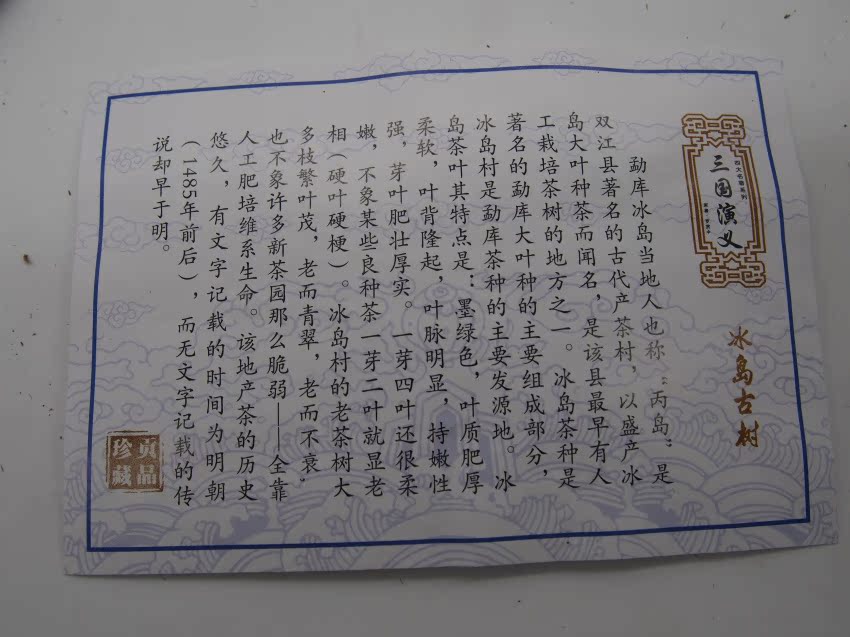 四大名著系列
三国演义
冰岛古树
勐库冰岛当地人也称“丙岛”是
双江县著名的古代产茶村，以盛产冰
岛大叶种茶而闻名，是该县最早有人
工栽培茶树的地方之一。冰岛茶种是
著名的勐库大叶种的主要组成部分，
冰岛村是勐库茶种的主要发源地。冰
岛茶叶其特点是：墨绿色，叶质肥厚
柔软，叶背隆起，叶脉明显，持嫩性
强，芽叶肥壮厚实。一芽四叶还很柔
嫩，不象某些良种茶一芽二叶就显老
相（硬叶硬梗）。冰岛村的老茶树大
多枝繁叶茂，老而青翠，老而不衰，
也不象许多新茶园那么脆弱——全靠
人工肥培维系生命。该地产茶的历史
悠久，有文字记载的时间为明朝
（1485年前后），而无文字记载的传
说却早于明。
贡品
珍藏